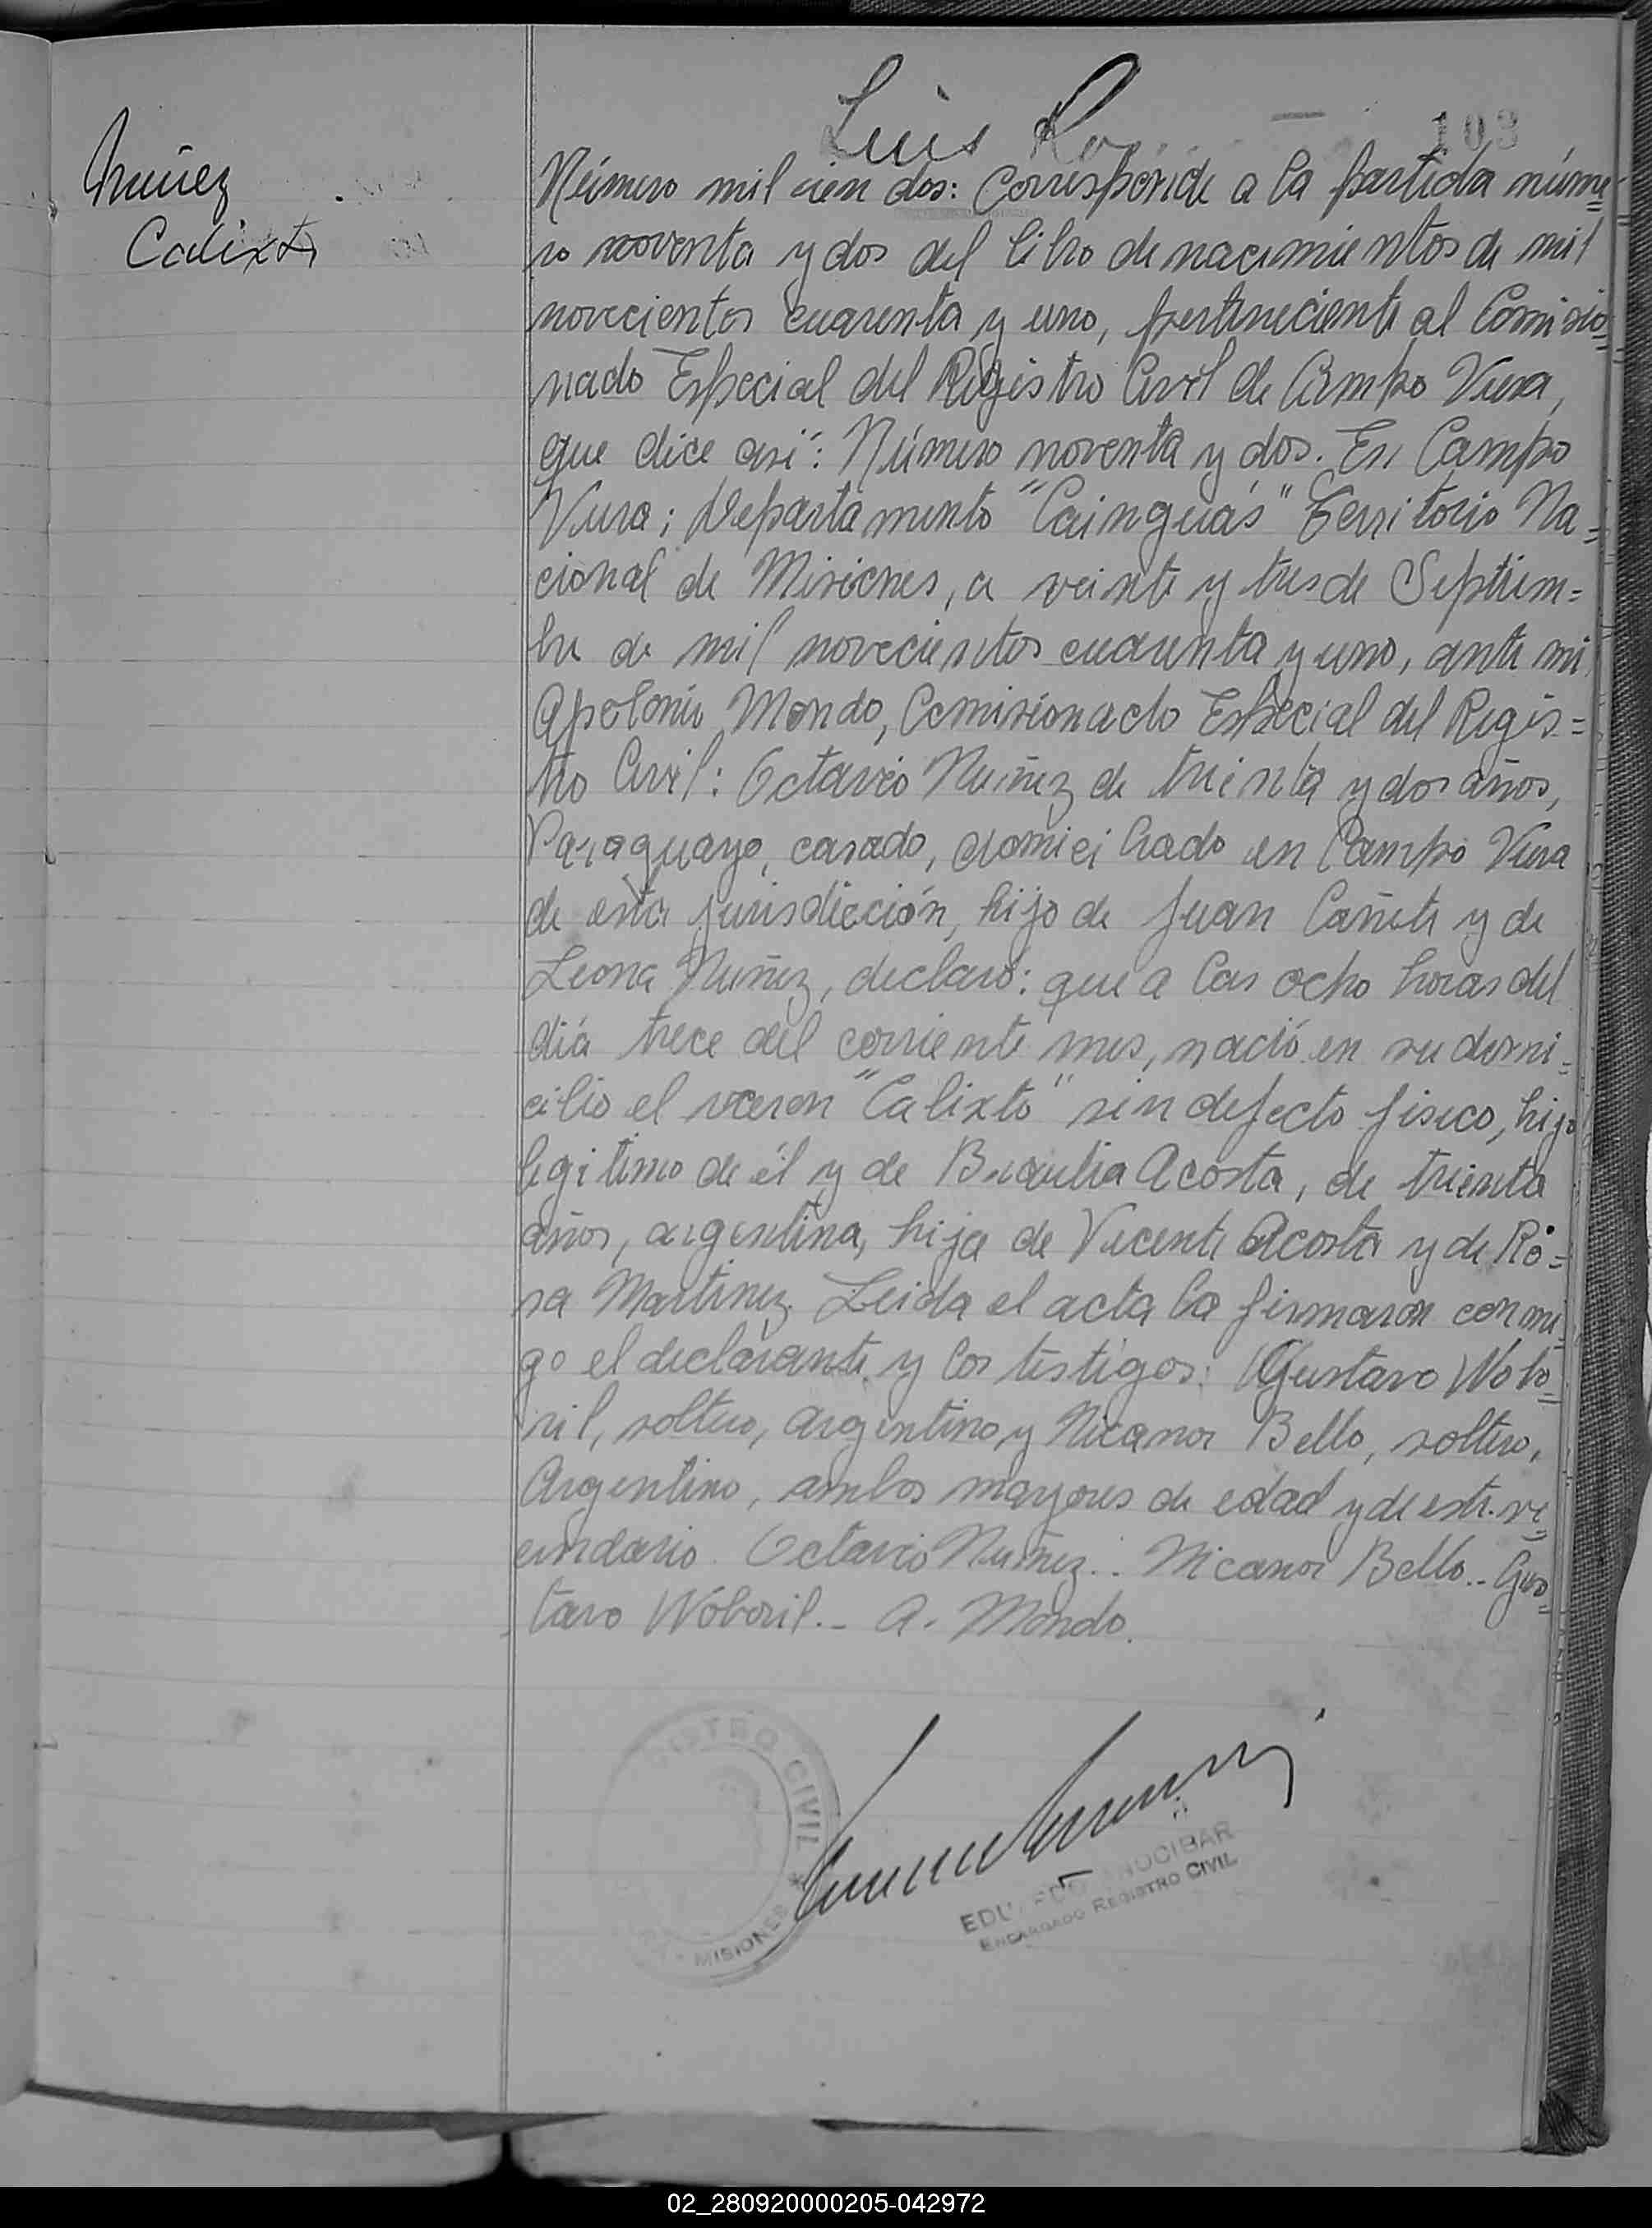 Luis
103
Nuñez
Calixto
Número mil cien dos: Corresponde a la partida núme=
ro noventa y dos del libro de nacimientos de mil
novecientos cuarenta y uno, perteneciente al Comisio=
nado Especial del Registro Civil de Campo Viera,
que dice así: Número noventa y dos. En Campo
Viera; Departamento "Cainguás" Territorio Na=
cional de Misiones, a veinte y tres de Septiem=
bre de mil novecientos cuarenta y uno, ante mi
Apolonio Mondo, Comisionado Especial del Regis=
tro Civil: Octavio Nuñez de treinta y dos años,
Paraguayo, casado, domiciliado en Campo Viera
de esta jurisdicción, hijo de Juan Cañete y de
Leona Nuñez, declaró: que a las ocho horas del
día trece del corriente mes, nació en su domi=
cilio el varon "Calixto" sin defecto fisico, hijo
legitimo de él y de Braulia Acosta, de treinta
años, argentina, hija de Vicente Acosta y de Ro=
sa Martinez. Leida el acta la firmaron conmi=
go el declarante y los testigos: Gustavo Wobo=
ril, soltero, argentino y Nicanor Bello, soltero,
Argentino, ambos mayores de edad y de este ve=
cindario. Octavio Nuñez.. Nicanor Bello.. Gus=
tavo Woboril.- A. Mondo.
CIVIL
MISIONES
ENCARGADO REGISTRO CIVIL
02_280920000205-042972